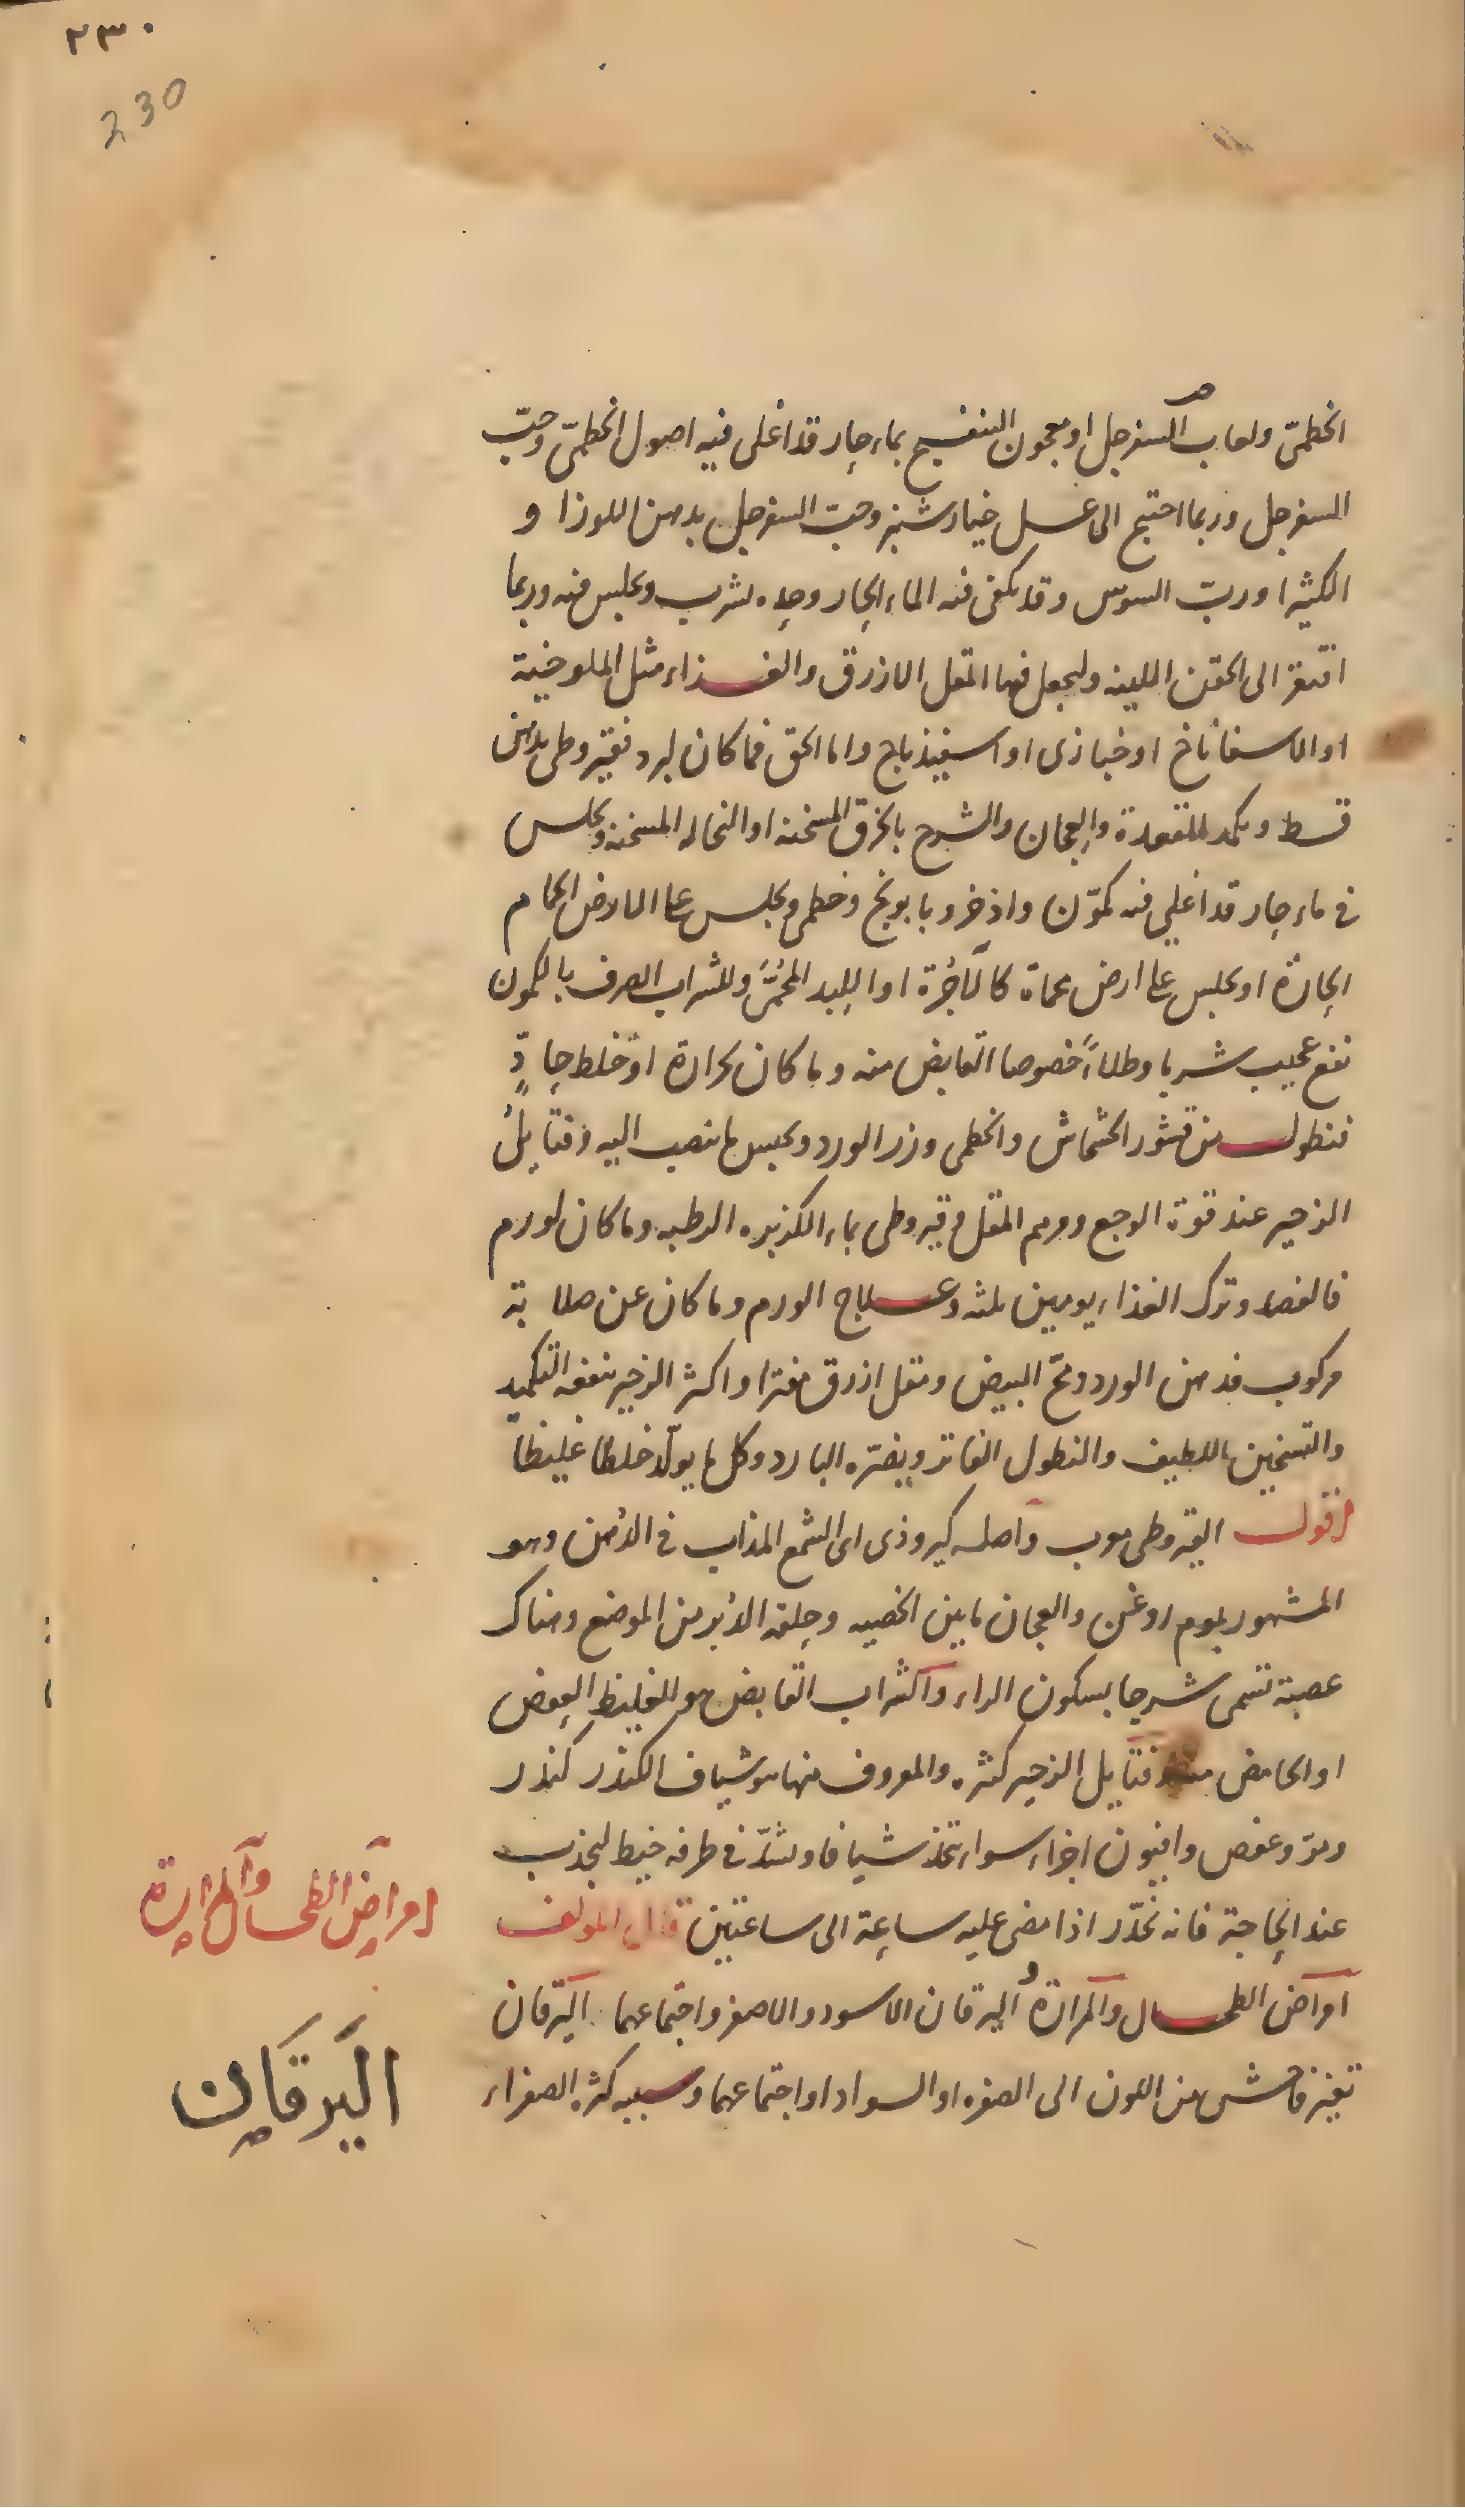 ٢٣٠
230
الخطمىّ ولعاب السفرجل او معجون البنفسج بماء حار قد اغلى فيه اصول الخطمىّ وحبّ
السفرجل وربما احتيج الى عسل خيار شنبر وحبّ السفرجل بدهن اللوز او
الكثيرا وربّ السوس وقد يكفى فيه الماء الحار وحده يشرب ويجلس فيه وربما
افتقر الى الحقن اللينه وليجعل فيها المقل الازرق والغذاء مثل الملوخية
او الاسفاناخ او خبازى او اسفيذباج واما الحق فما كان لبرد فقيروطى بدهن
قسط ويكمد المقعدة والعجان والشرج بالخرق المسخنه او النخاله المسخنه ويجلس
فى ماء حار قد اغلي فيه كمّون واذخر وبابونج وخطمى ويجلس على الارض الحمام
الحارّة او يجلس على ارض محماة كالآجُرّة او اللبد المحُمَّى وللشراب الصرف بالكمون
نفع عجيب شربا وطلاءً خصوصا القابض منه وما كان لحرارة او خلط حادٍّ
فنطول من قشور الخشخاش والخطمى وزر الورد ويحبس ما ينصب اليه وفتايلُ
الزحير عند قوة الوجع ومرهم المقل وقيروطى بماء الكزبره الرطبه وما كان لورم
فالفصد وترك الغذاء يومين ثلثه وعلاج الورم وما كان عن صلابة
مركوب فدهن الورد ومحّ البيض ومقل ازرق مفترا واكثر الزحير ينفعه التكميد
والتسخين اللطيف والنطول الفاتر ويضرّه البارد وكل ما يولّد خلطا غليظاً
اقول القيروطى معرب واصله كيروذى اى الشمع المذاب فى الدُهن وهو
المشهور بموم روغن والعجان ما بين الخصيه وحلقه الدُبر من الموضع وهناك
عصبة تسمى شرجا بسكون الراء والشراب القابض هو الغليظ العفص
او الحامض وفتايل الزحير كثيره والمعروف منها هو شياف الكندر كندر
ومرّ وعفص وافيون اجزاء سواء يتخذ شيافا ويشدّ فى طرفه خيط ليجذب
عند الحاجة فانه يخدّر اذا مضى عليه ساعة الى ساعتين قال المولف
امراض الطحال والمرارة اليرقان الاسود والاصفر واجتماعهما اليَرقان
تغيّر فاحش من اللون الى الصفره او السواد او اجتماعهما وسببه كثره الصفراء
امراض الطحال والمرارة
اليَرقَان